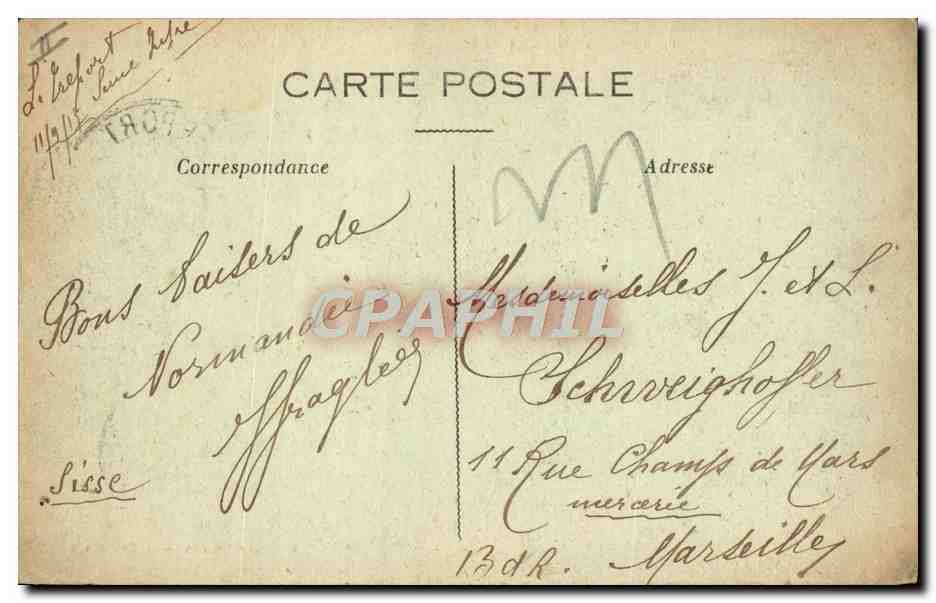 II
Le Treport
11/9/15 Seine Infre
CARTE POSTALE
PORT
Correspondance
Adresse
Bons baisers de
Normandie
Sisse
Mesdemoiselles J. et L.
Schweighoffer
11 Rue Champ de Mars
mercerie
B d R. Marseille
CPAPHIL